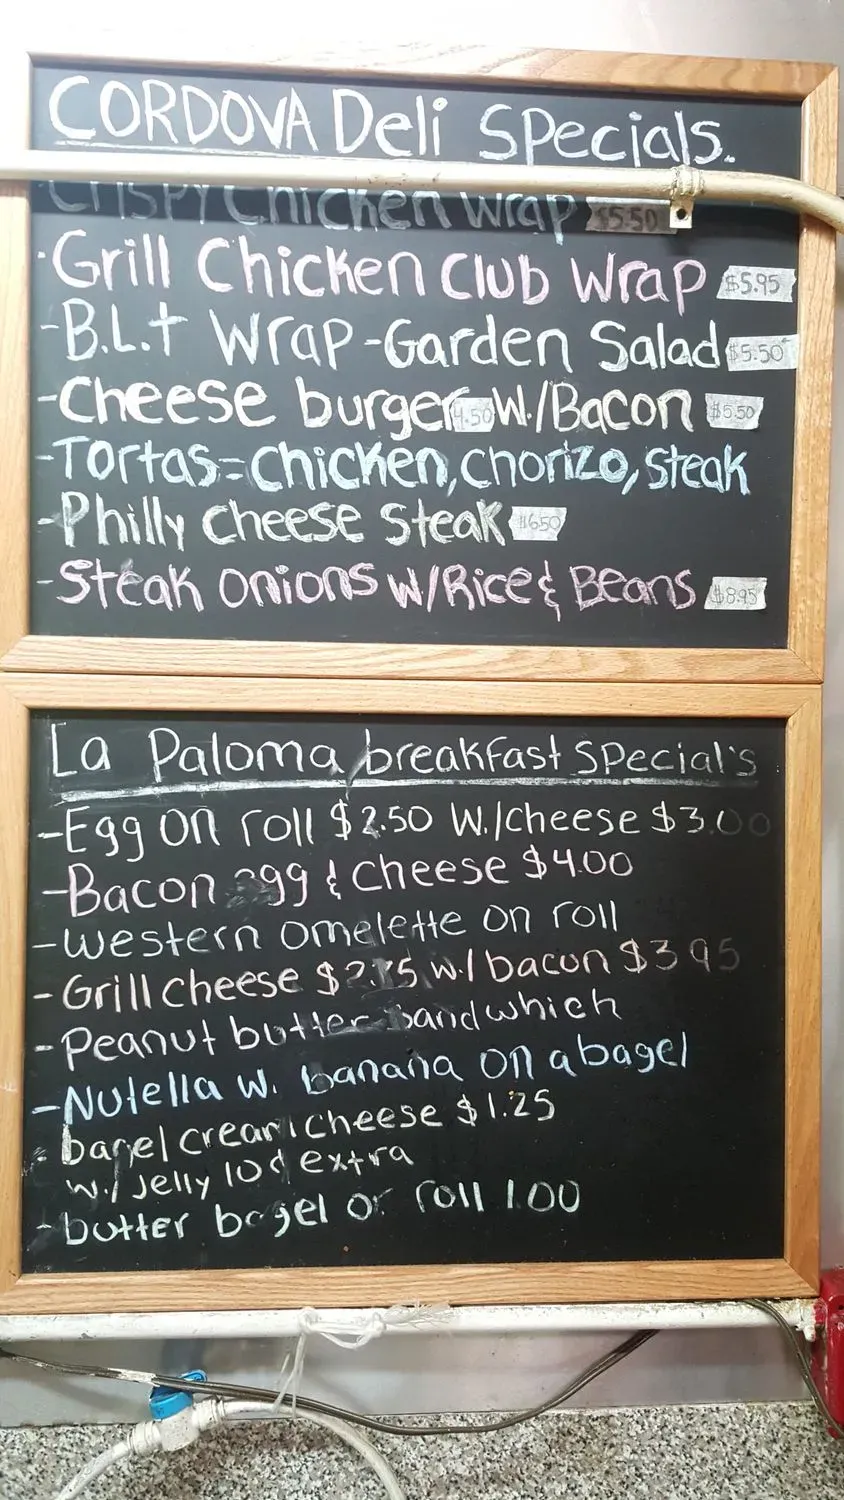 CORDOVA Deli Specials.
Crispy Chicken Wrap $5.50
·Grill Chicken Club Wrap $5.95
-B.L.t Wrap -Garden Salad $5.50
-Cheese burger 4.50 W./Bacon $5.50
-Tortas=Chicken, Chorizo, Steak
-Philly Cheese Steak $6.50
-Steak Onions W/Rice & Beans $8.95
La Paloma breakfast Special's
-Egg on roll $2.50 W./Cheese $3.00
-Bacon egg & Cheese $4.00
-Western Omelette on roll
-Grill Cheese $2.75 w./bacon $3.95
-Peanut butter sandwhich
-Nutella W. banana on a bagel
-bagel cream cheese $1.25
w./ Jelly 10¢ extra
-butter bagel or roll 1.00